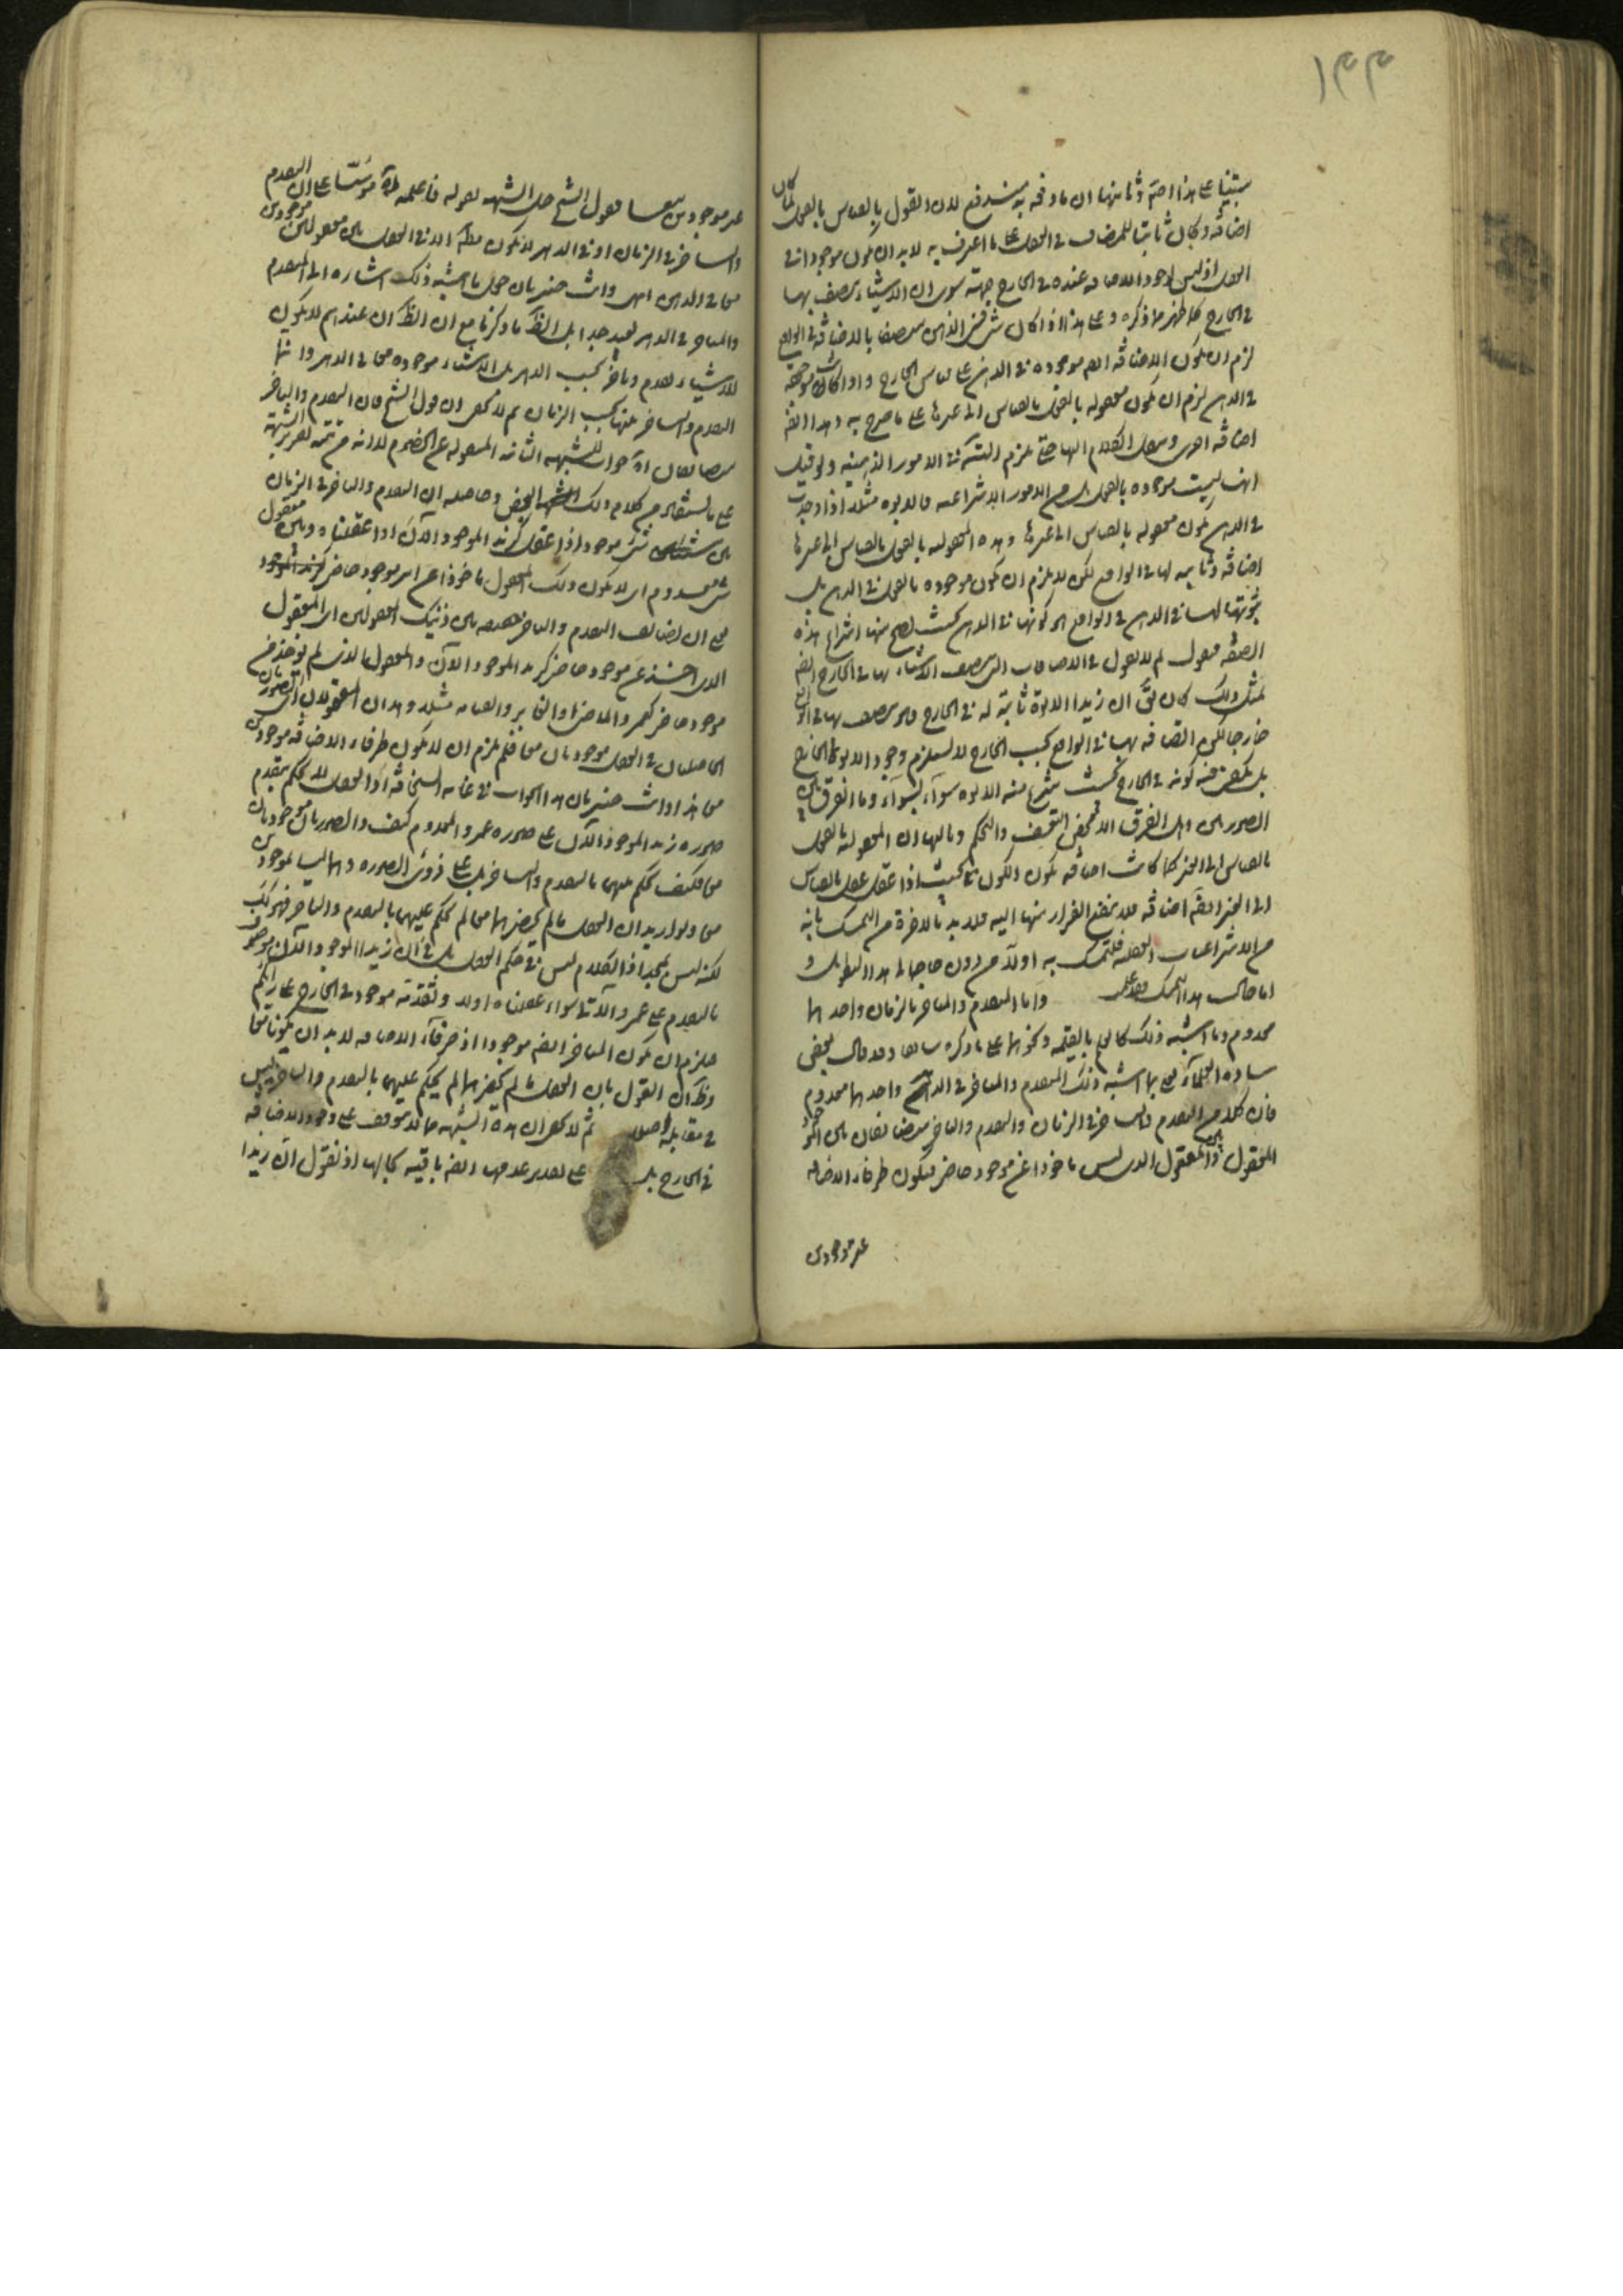 ١٤٤
يبتنيا على هذا وثانيها ان ما وقع به يندفع لان القول بالقياس بالفعل لما كان
اضافة وكان ثابتا للمضاف في العقل على ما اعترف به لا بد ان يكون موجودا في
العقل اذ ليس لوجود الاضافة عنده في الخارج جهة سوى ان الاشياء يتصف بها
في الخارج كما ظهر مما ذكره وعلى هذا اذا كان شيء في الذهن متصفا بالاضافة في الواقع
لزم ان يكون الاضافة ايضا موجودة في الذهن على قياس الخارج واذا كانت موجودة
في الذهن لزم ان يكون معقولة بالفعل بالقياس الى غيرها على ما صرح به وهذا ايضا
اضافة اخرى وينقل الكلام اليها حتى يلزم التسلسل في الامور الذهنية ولو قيل
انها ليست موجودة بالفعل بل من الامور الانتزاعية فالابوة مثلا اذا وجدت
في الذهن يكون معقولة بالقياس الى غيرها وهذه المعقولية بالفعل بالقياس الى غيرها
اضافة وثابتة لها في الواقع لكن لا يلزم ان يكون موجودة بالفعل في الذهن بل
ثبوتها لها في الذهن في الواقع هو كونها في الذهن بحيث يصح منها انتزاع هذه
الصفة فنقول لم لا نقول في الاضافات التي يتصف الاشياء بها في الخارج ايضا
بمثل ذلك كان يقال ان زيدا الابوة ثابتة له في الخارج وهو متصف بها في الواقع
خارجا لكن اتصافه بها في الواقع بحسب الخارج لا يستلزم وجود الابوة في الخارج
بل يكفي فيه كونه في الخارج بحيث ينتزع منه الابوة سواء بسواء وما الفرق بين
الصورتين وهل الفرق الا محض التعسف والتحكم وثالثها ان المعقولية بالفعل
بالقياس الى الغير كما كانت اضافة يكون الكون بحيث اذا عقل عقل بالقياس
الى الغير ايضا اضافة فلا ينفع الفرار منها اليه فلا بد بالاخرة من التمسك بانه
من الانتزاعيات العقلية فليتمسك به اولا من دون حاجة الى هذا التطويل و
اما حال هذا التمسك فقد علم واما المتقدم والمتاخر بالزمان واحدهما
معدوم وما اشبه ذلك كالعلم بالقيمة ونحوهما على ما ذكره سابقا وقد قال بعض
سادة العلماء يعني بما اشبه ذلك المتقدم والمتاخر في الذهن واحدهما معدوم
فان كلا من المتقدم والمتاخر في الزمان والمتقدم والمتاخر متضايفان بين الموجود
المعقول وبين المعقول الذي ليس ماخوذا عن موجود حاضر فيكون طرفا الاضافة
غير موجودين
غير موجودين معا فيقول الشيخ حل الشبهة بقوله فاعلم ان التقدم
والتاخر في الزمان او في الدهر لا يكون مطلقا الا في العقل بين معقولين موجودين
معا في الذهن انتهى وانت خبير بان حمل ما اشبه ذلك اشارة الى المتقدم
والمتاخر في الدهر بعيد جدا بل الظاهر ما ذكرنا مع ان الظاهر ان عندهم لا يكون
للاشياء تقدم وتاخر بحسب الدهر بل الاشياء موجودة معا في الدهر وانما
التقدم والتاخر بينها بحسب الزمان ثم لا يخفى ان قول الشيخ فان المتقدم والمتاخر
متضايفان جواب للشبهة الثانية المنقولة عن الخصوم لا انه من تتمة تقرير الشبهة
على ما يستفاد من كلام ذلك البعض وحاصله ان التقدم والتاخر في الزمان
بين شيء موجود اذا عقل كزيد الموجود الآن اذا عقلناه وبين معقول
شيء معدوم اي لا يكون ذلك المعقول ماخوذا عن امر موجود حاضر كزيد الموجود
مع ان تضايف التقدم والتاخر حقيقة بين ذينك المعقولين اي المعقول
الذي اخذ عن موجود حاضر كزيد الموجود الآن والمعقول الذي لم يؤخذ عن
موجود حاضر كعمرو الماضي والغابر والقيامة مثلا وهذان المعقولان اي الصورتان
الحاصلتان في العقل موجودتان معا فلم يلزم ان لا يكون طرفا الاضافة موجودين
معا هذا وانت خبير بان هذا الجواب في غاية السخافة اذ العقل لا يحكم بتقدم
صورة زيد الموجود الآن على صورة عمرو المعدوم كيف والصورتان موجودتان
معا فكيف يحكم عليهما بالتقدم والتاخر بل على ذوي الصورة وهما ليسا موجودين
معا ولو اريد ان العقل ما لم يحضرهما معا لم يحكم عليهما بالتقدم والتاخر فهو كذلك
لكنه ليس بمجد اذ الكلام ليس في حكم العقل بل في ان زيدا الموجود الآن موصوف
بالتقدم على عمرو الآتي سواء عقلناه اولا وتقدمه موجود في الخارج على رايكم
فيلزم ان يكون المتاخر ايضا موجودا اذ طرفا الاضافة لا بد ان يكونا معا
وظاهر ان القول بان العقل ما لم يحضرهما لم يحكم عليهما بالتقدم والتاخر ليس
في مقابله اصلا ثم لا يخفى ان هذه الشبهة مما لا يتوقف على وجود الاضافة
في الخارج بل على تقدير عدمها ايضا باقية بحالها اذ نقول ان زيدا